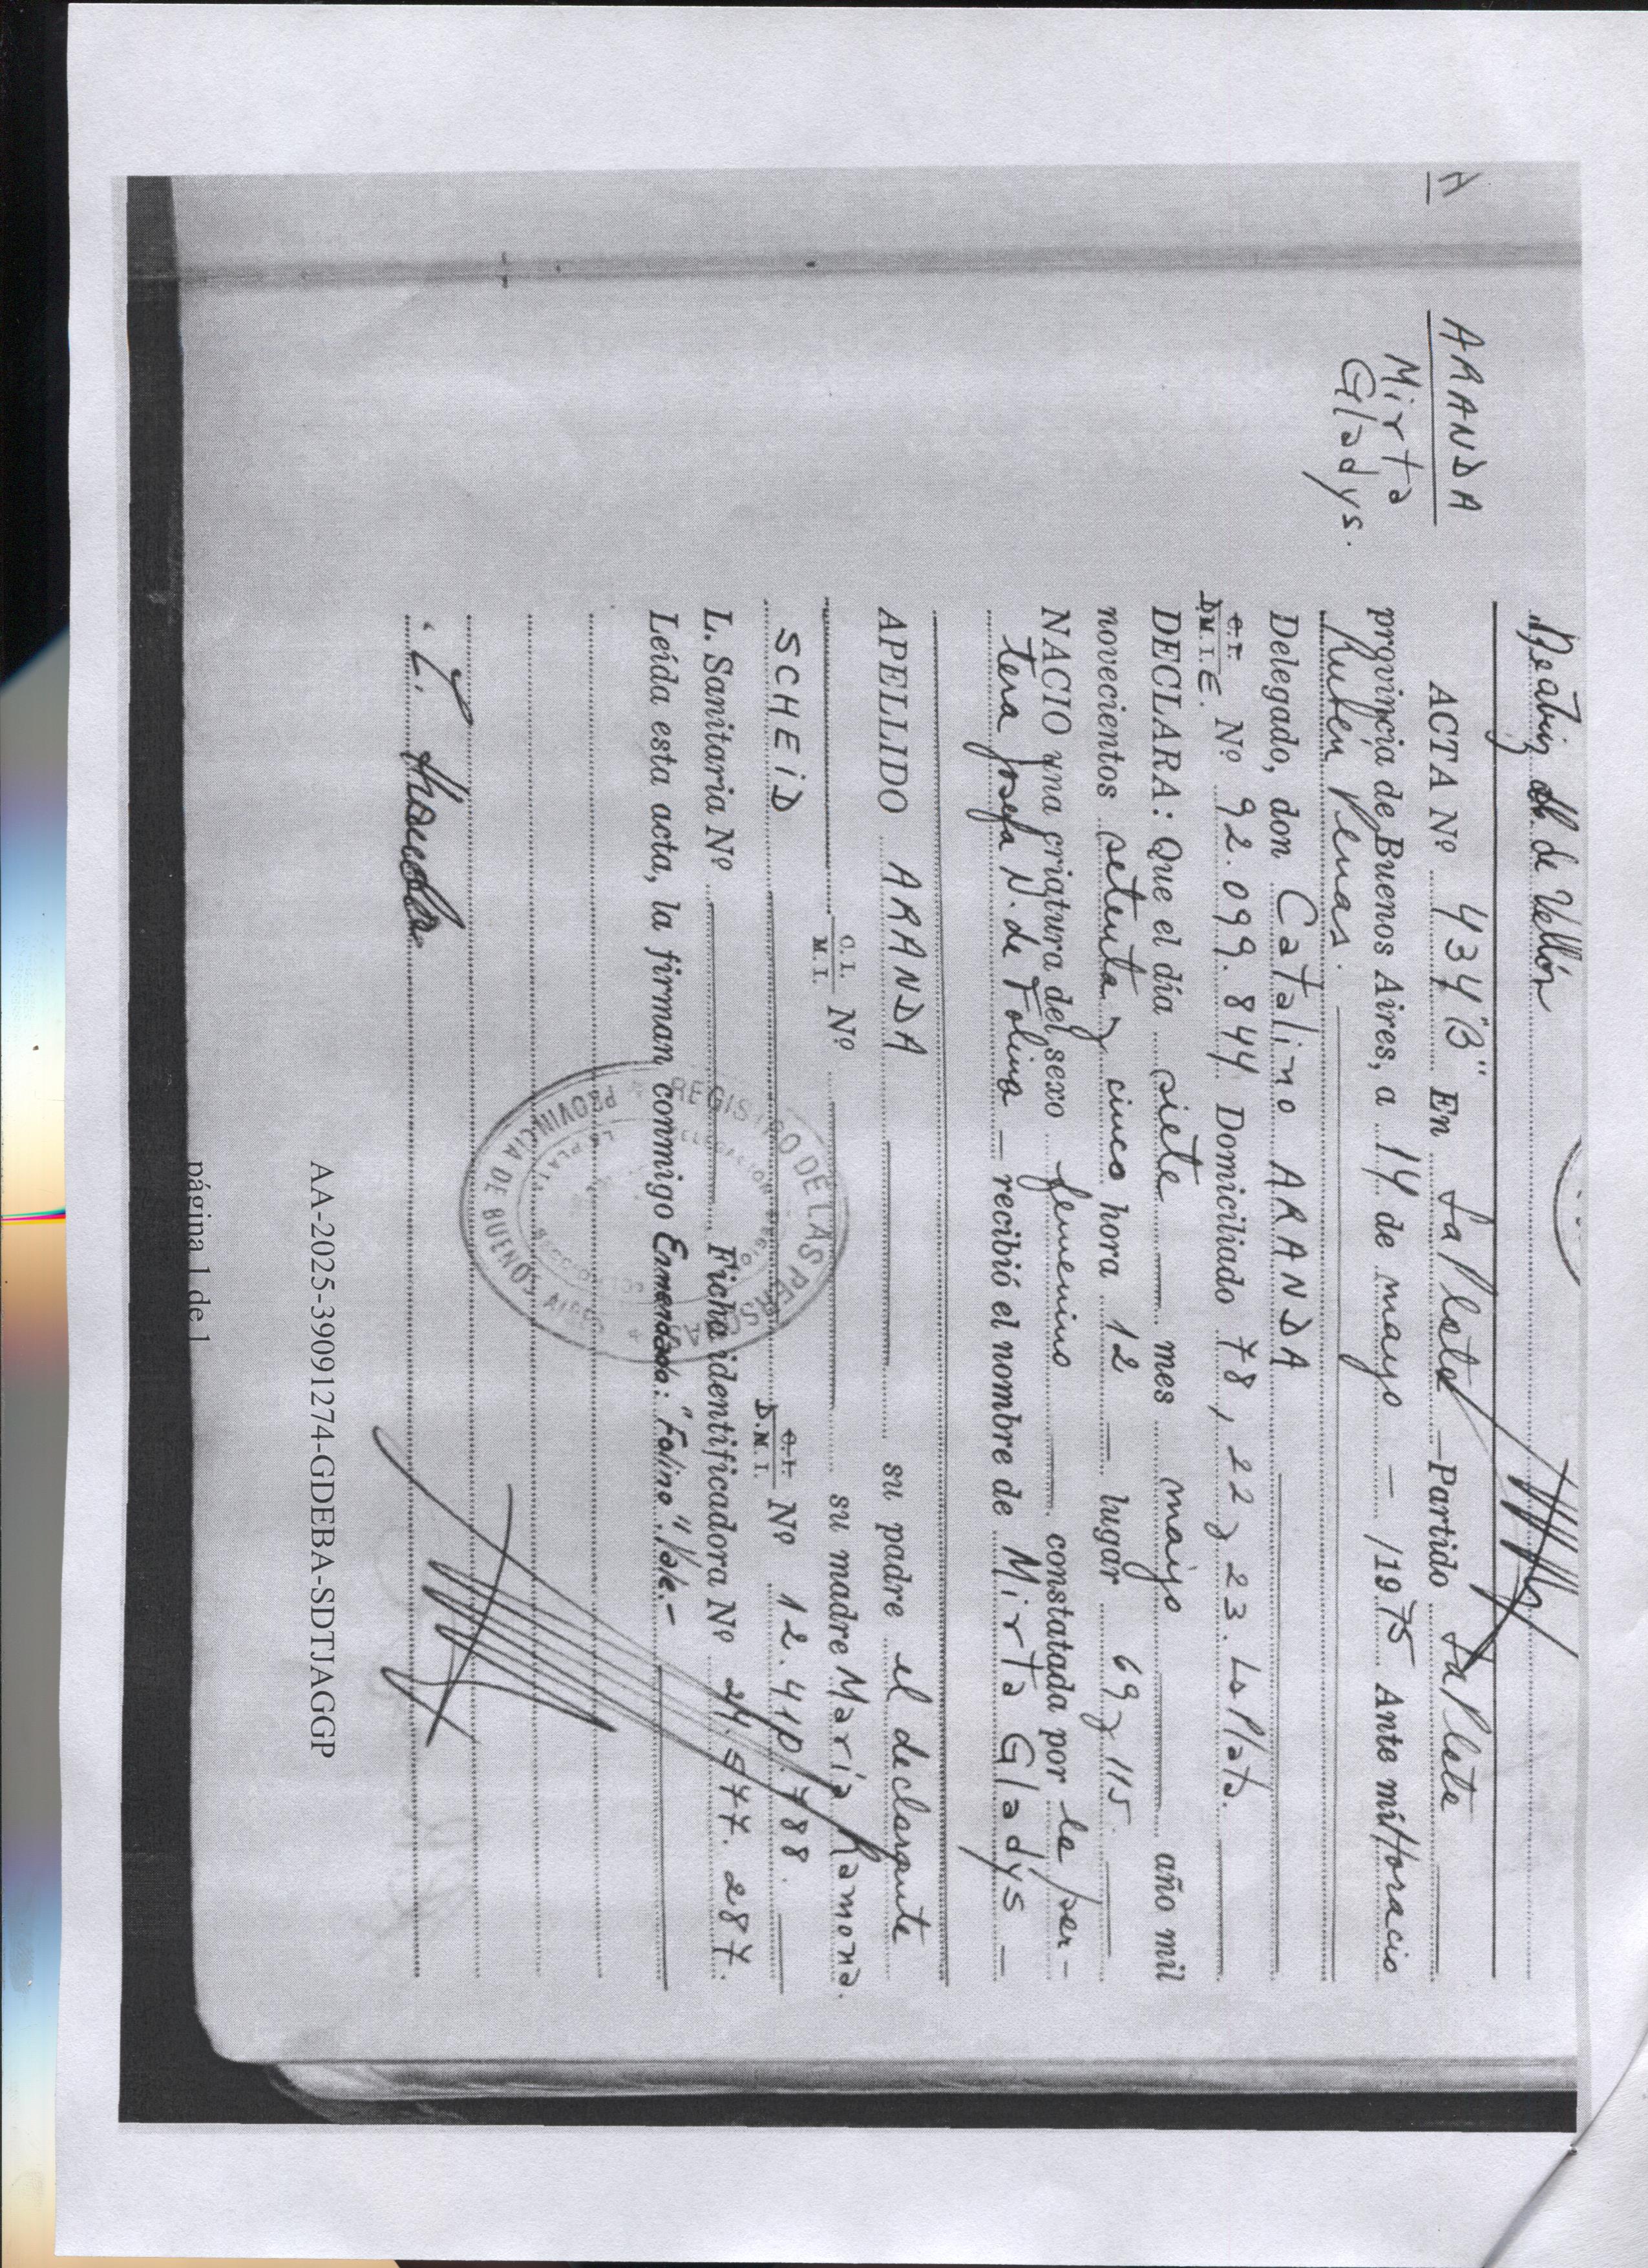 Beatriz de Vellón
A
ARANDA
Mirta
Gladys.
ACTA Nº 434 "B" En La Plata — Partido La Plata
provincia de Buenos Aires, a 14 de mayo — /1975 Ante mí Horacio
Ruben Penas.
Delegado, don Catalino ARANDA
C.I. D.M.I.E. Nº 92.099.844 Domiciliado 78, 22 y 23. La Plata.
DECLARA: Que el día siete mes mayo año mil
novecientos setenta y cinco hora 12 — lugar 69 y 115.
NACIO una criatura del sexo femenino constatada por la par-
tera Josefa N. de Folino — recibió el nombre de Mirta Gladys —
APELLIDO ARANDA su padre el declarante
C.I. M.I. Nº su madre María Ramona
SCHEID C.I. D.M.I. Nº 12.410.788.
L. Sanitaria Nº Ficha identificadora Nº 24.577.287.
Leída esta acta, la firman conmigo Enmendado: "Folino" Vale.-
REGISTRO DE LAS PERSONAS
PROVINCIA DE BUENOS AIRES
LA PLATA
AA-2025-39091274-GDEBA-SDTJAGGP
página 1 de 1